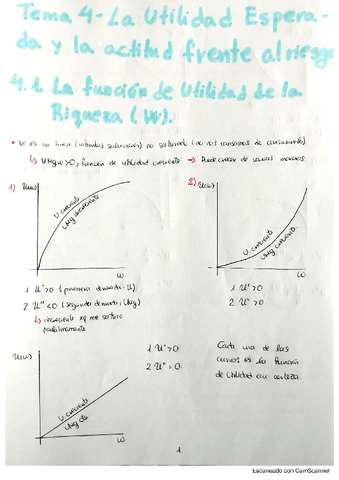 Tema 4 - La Utilidad Espera-
da y la actitud frente al riesgo
4.1. La función de utilidad de la
Riqueza (W).
• W es un bien (estados saturación) no saturado (no nos cansamos de consumirlo)
↳ UMgw > 0, función de utilidad creciente → Puede crecer de varias maneras
1) U(w)
U creciente
UMg decreciente
W
1 U' > 0 (primera derivada: U).
2 U'' < 0 (segunda derivada: UMg)
↳ decreciente xq me satura
paulatinamente
2) U(w)
U creciente
UMg creciente
W
1 U' > 0
2 U'' > 0
U(w)
U creciente
UMg cte
W
1 U' > 0
2 U'' = 0
Cada una de las
curvas es la función
de utilidad con certeza.
1.
Escaneado con CamScanner